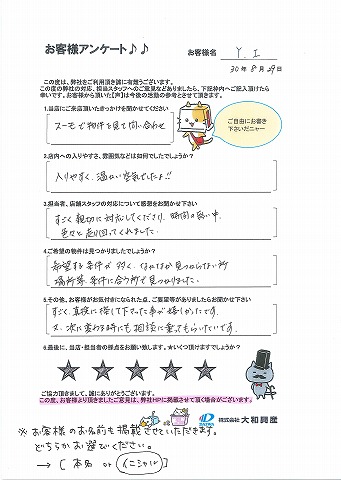 お客様アンケート♪♪
お客様名 Y.I
30年8月29日
この度は、弊社をご利用頂き誠に有難うございます。
この度の弊社の対応、担当スタッフへのご意見などありましたら、下記枠内へご記入頂けたら
幸いです。お客様から頂いた【声】は今後の活動の参考とさせて頂きます。
1.当店にご来店頂いたきっかけを聞かせてください
スーモで物件を見て問い合わせ
ご自由にお書き
下さいだニャー
2.店内への入りやすさ、雰囲気などは如何でしたでしょうか?
入りやすく、温かい空気でしたよ!!
3.担当者、店舗スタッフの対応について感想をお聞かせ下さい
すごく親切に対応してくださり、時間の無い中、
色々と走り回ってくれました。
4.ご希望の物件は見つかりましたでしょうか?
希望する条件が多く、なかなか見つからない所
場所等、条件に合う所で見つかりました。
5.その他、お客様がお気付きになられた点、ご要望等がありましたらお聞かせ下さい
すごく、真検に探して下さった事が嬉しかったです。
又、次に変わる時にも相談に乗ってもらいたいです。
6.最後に、当店・担当者の採点をお願い致します。★いくつ頂けますでしょうか?
ご協力頂きまして、誠にありがとうございます。
この度、お客様より頂きましたご意見は、弊社HPに掲載させて頂く場合がございます。
DAIWA 株式会社 大和興産
※お客様のお名前も掲載させていただきます。
どちらかお選びください。
→ [ 本名 or イニシャル ]